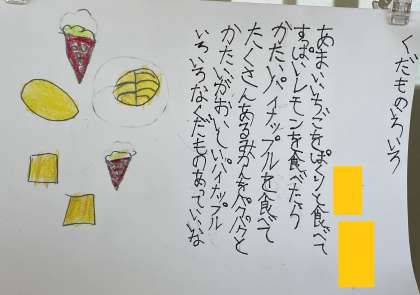 くだものいろいろ
あまいいちごをぱくりと食べて
すっぱいレモンを食べたら
かたいパイナップルを食べて
たくさんあるみかんをパクパクと
かたいがおいしいパイナップル
いろいろなくだものあっていいな